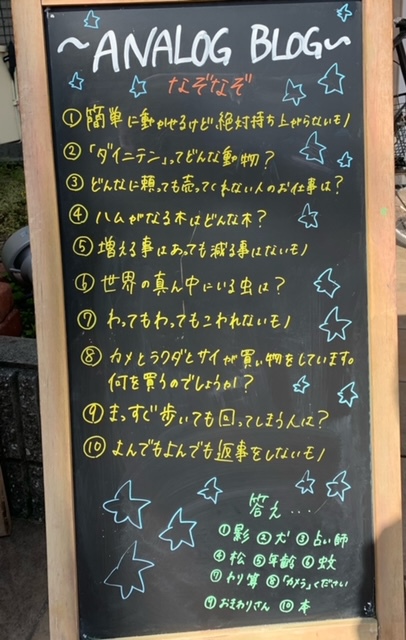 ~ANALOG BLOG~
なぞなぞ
① 簡単に動かせるけど絶対持ち上がらないモノ
② 「ダイニテン」ってどんな動物？
③ どんなに頼っても売ってくれない人のお仕事は？
④ ハムがなる木はどんな木？
⑤ 増える事はあっても減る事はないモノ
⑥ 世界の真ん中にいる虫は？
⑦ わってもわってもこわれないモノ
⑧ カメとラクダとサイが買い物をしています。
何を買うのでしょうか？
⑨ まっすぐ歩いても回ってしまう人は？
⑩ よんでもよんでも返事をしないモノ
答え...
①影 ②犬 ③占い師
④松 ⑤年齢 ⑥蚊
⑦わり算 ⑧「カメラ」ください
⑨おまわりさん ⑩本